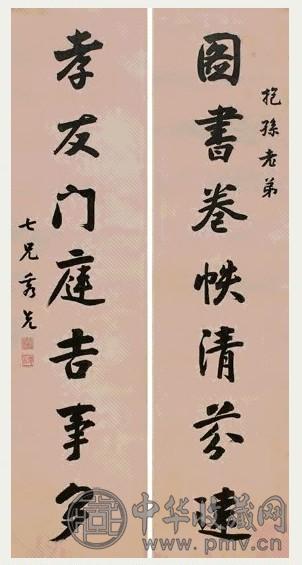 抱孫老弟
圖書卷帙清芬遠
孝友门庭吉事多
七兄
中华收藏网
www.pmv.cn